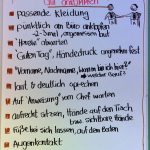 passende Kleidung
pünktlich am Büro anklopfen
2-3mal, angemessen laut
"Herein" abwarten
"Guten Tag", Händedruck angemessen fest
"Vorname, Nachname, wann bin ich hier?"
laut + deutlich sprechen
Auf Anweisung vom Chef warten
aufrecht sitzen, Hände auf den Tisch
bzw. sichtbare Hände
Füße bei sich lassen, auf dem Boden
Augenkontakt